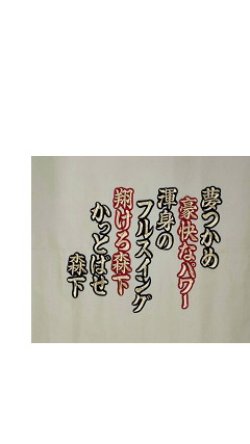 夢つかめ
豪快なパワー
渾身の
フルスイング
翔けろ森下
かっとばせ
森下